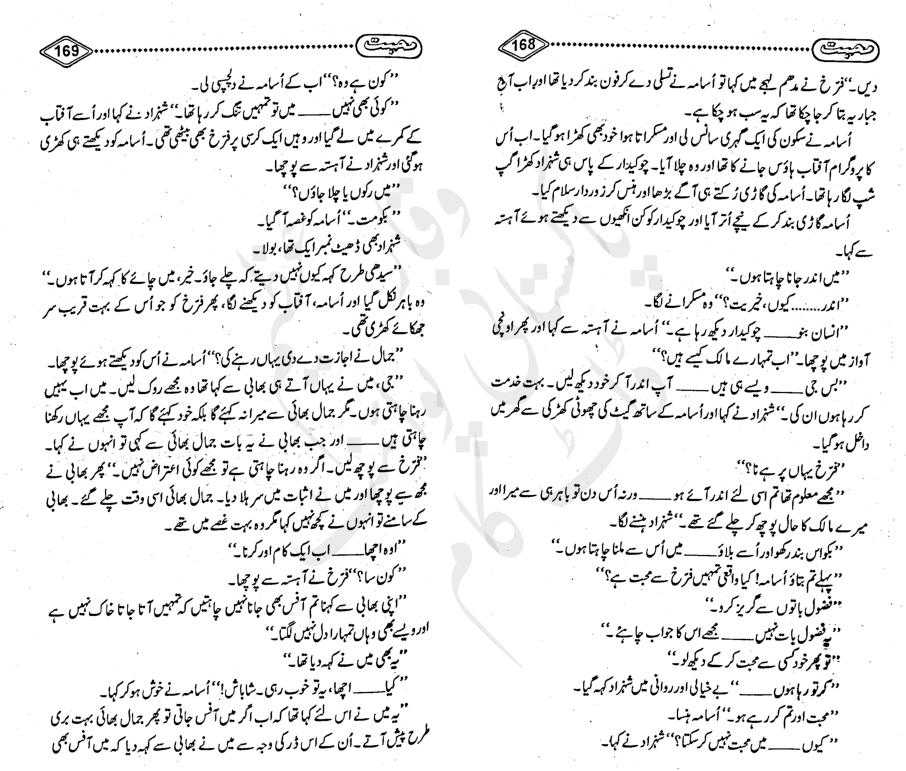 محبت 168
دیں۔‘‘ فرّخ نے مدھم لہجے میں کہا تو اُسامہ نے تسلی دے کر فون بند کر دیا تھا اور اب آج
جبار یہ بتا کر جا چکا تھا کہ یہ سب ہو چکا ہے۔
اُسامہ نے سکون کی ایک گہری سانس لی اور مسکراتا ہوا خود بھی کھڑا ہو گیا۔ اب اُس
کا پروگرام آفتاب ہاؤس جانے کا تھا اور وہ چلا آیا۔ چوکیدار کے پاس ہی شہزاد کھڑا گپ
شپ لگا رہا تھا۔ اُسامہ کی گاڑی رُکتے ہی آگے بڑھا اور ہنس کر زوردار سلام کیا۔
اُسامہ گاڑی بند کر کے نیچے اُتر آیا اور چوکیدار کو کن انکھیوں سے دیکھتے ہوئے آہستہ
سے کہا۔
’’میں اندر جانا چاہتا ہوں۔‘‘
’’اندر........ کیوں، خیریت؟‘‘ وہ مسکرانے لگا۔
’’انسان بنو ____ چوکیدار دیکھ رہا ہے۔‘‘ اُسامہ نے آہستہ سے کہا اور پھر اونچی
آواز میں پوچھا۔ ’’اب تمہارے مالک کیسے ہیں؟‘‘
’’بس جی ____ ویسے ہی ہیں ____ آپ اندر آ کر خود دیکھ لیں۔ بہت خدمت
کر رہا ہوں ان کی۔‘‘ شہزاد نے کہا اور اُسامہ کے ساتھ گیٹ کی چھوٹی کھڑکی سے گھر میں
داخل ہو گیا۔
’’فرّخ یہاں پر ہے نا؟‘‘
’’مجھے معلوم تھا تم اسی لئے اندر آئے ہو ____ ورنہ اُس دن تو باہر ہی سے میرا اور
میرے مالک کا حال پوچھ کر چلے گئے تھے۔‘‘ شہزاد ہنسنے لگا۔
’’بکواس بند رکھو اور اُسے بلاؤ ____ میں اُس سے ملنا چاہتا ہوں۔‘‘
’’پہلے تم بتاؤ اُسامہ! کیا واقعی تمہیں فرّخ سے محبت ہے؟‘‘
’’فضول باتوں سے گریز کرو۔‘‘
’’یہ فضول بات نہیں ____ مجھے اس کا جواب چاہئے۔‘‘
’’تو پھر خود کسی سے محبت کر کے دیکھ لو۔‘‘
’’کر تو رہا ہوں ____‘‘ بے خیالی اور روانی میں شہزاد کہہ گیا۔
’’محبت اور تم کر رہے ہو۔‘‘ اُسامہ ہنسا۔
’’کیوں ____ میں محبت نہیں کر سکتا؟‘‘ شہزاد نے کہا۔
محبت 169
’’کون ہے وہ؟‘‘ اب کے اُسامہ نے دلچسپی لی۔
’’کوئی بھی نہیں ____ میں تو تمہیں تنگ کر رہا تھا۔‘‘ شہزاد نے کہا اور اُسے آفتاب
کے کمرے میں لے گیا اور وہیں ایک کرسی پر فرّخ بھی بیٹھی تھی۔ اُسامہ کو دیکھتے ہی کھڑی
ہو گئی اور شہزاد نے آہستہ سے پوچھا۔
’’میں رکوں یا چلا جاؤں؟‘‘
’’بکومت۔‘‘ اُسامہ کو غصہ آ گیا۔
شہزاد بھی ڈھیٹ نمبر ایک تھا، بولا۔
’’سیدھی طرح کہہ کیوں نہیں دیتے کہ چلے جاؤ۔ خیر، میں چائے کا کہہ کر آتا ہوں۔‘‘
وہ باہر نکل گیا اور اُسامہ، آفتاب کو دیکھنے لگا، پھر فرّخ کو جو اُس کے بہت قریب سر
جھکائے کھڑی تھی۔
’’جمال نے اجازت دے دی یہاں رہنے کی؟‘‘ اُسامہ نے اُس کو دیکھتے ہوئے پوچھا۔
’’جی، میں نے یہاں آتے ہی بھابی سے کہا تھا وہ مجھے روک لیں۔ میں اب یہیں
رہنا چاہتی ہوں۔ مگر جمال بھائی سے میرا نہ کہئے گا بلکہ خود کہئے گا کہ آپ مجھے یہاں رکھنا
چاہتی ہیں ____ اور جب بھابی نے یہ بات جمال بھائی سے کہی تو انہوں نے کہا۔
’فرّخ سے پوچھ لیں۔ اگر وہ رہنا چاہتی ہے تو مجھے کوئی اعتراض نہیں۔‘‘ پھر بھابی نے
مجھ سے پوچھا اور میں نے اثبات میں سر ہلا دیا۔ جمال بھائی اسی وقت چلے گئے۔ بھابی
کے سامنے تو انہوں نے کچھ نہیں کہا مگر وہ بہت غصے میں تھے۔
’’اوہ اچھا ____ اب ایک کام اور کرنا۔‘‘
’’کون سا؟‘‘ فرّخ نے آہستہ سے پوچھا۔
’’اپنی بھابی سے کہنا تم آفس بھی جانا نہیں چاہتیں کہ تمہیں آتا جاتا خاک نہیں ہے
اور ویسے بھی وہاں تمہارا دل نہیں لگتا۔‘‘
’’یہ بھی میں نے کہہ دیا تھا۔‘‘
’’کیا ____ اچھا، یہ تو خوب رہی۔ شاباش!‘‘ اُسامہ نے خوش ہو کر کہا۔
’’یہ میں نے اس لئے کہا تھا کہ اب اگر میں آفس جاتی تو پھر جمال بھائی بہت بری
طرح پیش آتے۔ اُن کے اس ڈر کی وجہ سے میں نے بھابی سے کہہ دیا کہ میں آفس بھی